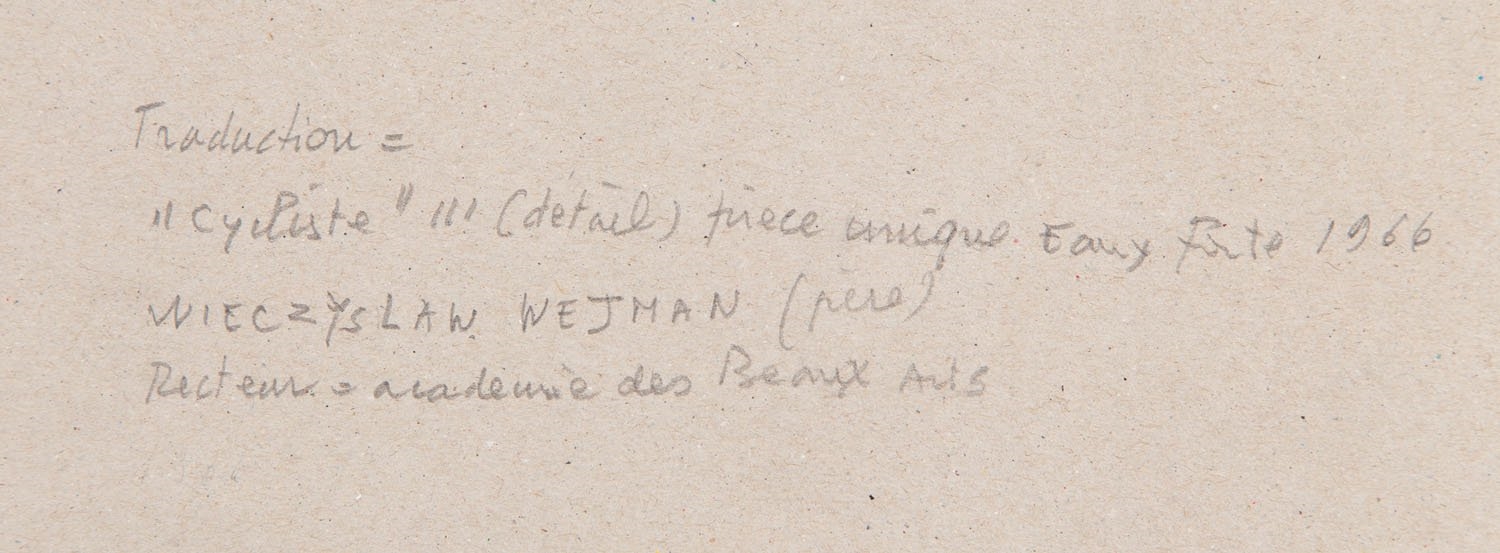 Traduction =
"Cycliste" III (détail) pièce unique Eaux Forte 1966
WIECZYSLAW WEJMAN (père)
Recteur = academie des Beaux Arts